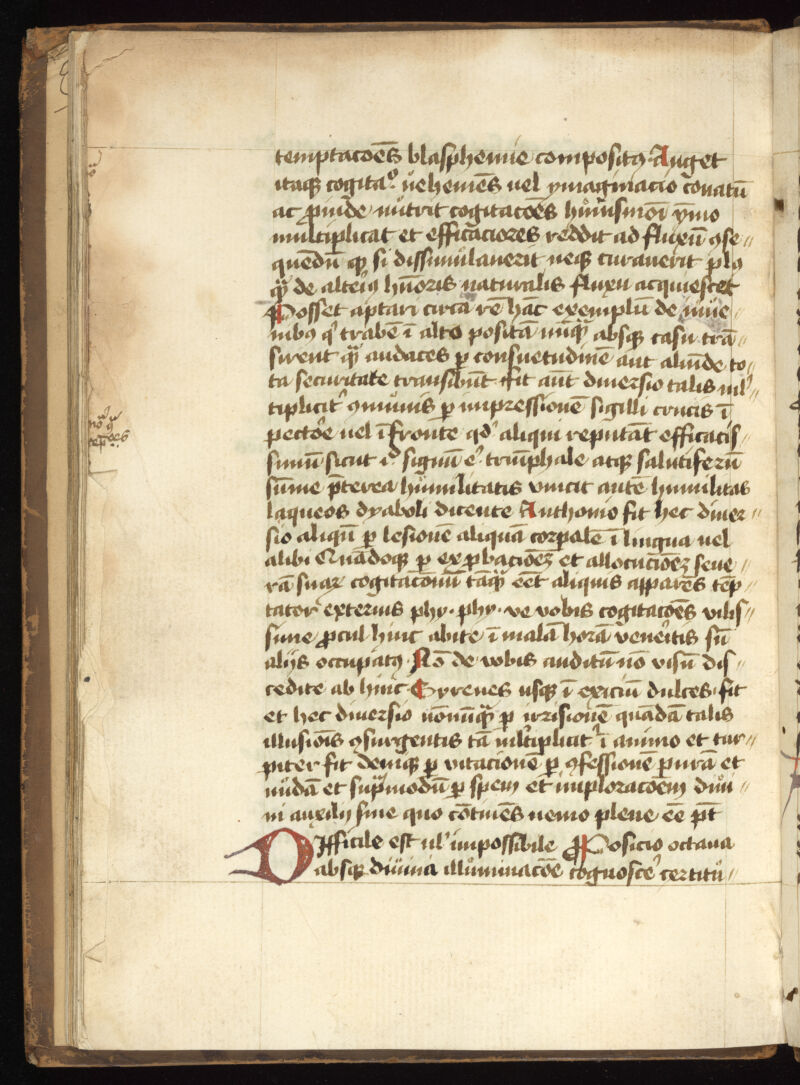 temptacōēs blasphemie compositꝰ Auget
itaqꝫ cogitaͦ. vehemēs uel ymaginacio conatū
ac ꝓinde nutrit cogitacōēs huiusmōi ymo
multiplicat et efficaciores reddit ad fluxū ꝯse〃
quēdū qꝫ si dissimulauerit neqꝫ curauerit plꝰ
qᷓ de alteiꝰ huōris naturalis fluxu acquiescet
Posset aptari circa rē hāc exemplū de iuue〃
nibꝰ qͥ trabē ī alto positā nūqᷓ absqꝫ casu trā〃
sirent qᷓ audaces ꝑ consuetudinē aut aliūde to〃
ta securitate transibūt fit aūt diuersio talis ml̓〃
tiplicit̓ ꝯmunis ꝑ impressionē sigilli crucis ī
pectōe uel ī fronte qd̓ aliqui reputāt efficacis〃
simū sicut signū ē triūphale atqꝫ salutiferū
sūme p̄terea humilitatis vincit autē humilitas
laqueos dyaboli dicente Anthonio fit hec diuer〃
sio aliqn̄ ꝑ lesionē aliquā corꝑalē ī lingua uel
alibi Quādoqꝫ ꝑ exꝓbacionēꝫ et allocucionēꝫ seue〃
rā suaꝝ cogitacionū tāqᷓ eēt aliquis apparēs tēp〃
tator exterius phy · phy · ve vobis cogitacōēs vilis〃
sime ꝓcul hinc abite ī malā horā veneritis sū
alijs occupatꝰ Nō de vobis auditū nō visū dis〃
cedite ab hinc Syrenes usqꝫ ī exiciū dulces · fit
et hec diuersio nonnūqᷓ ꝑ irrisionē quādā talis
illusiōis ꝯsurgentis tā ml̓tiplicit̓ ī animo et tur〃
piter fit deniqꝫ ꝑ vitacionē ꝑ ꝯfessionē purā et
nudā et supͬmodū ꝑ spem et imploracōem diui〃
ni auxilij sine quo cōtinēs nemo plene eē pt̄
Difficile est ul̓ impossibile Proposicio octaua
absqꝫ diuina illuminacōe cognosce̓ certitu〃